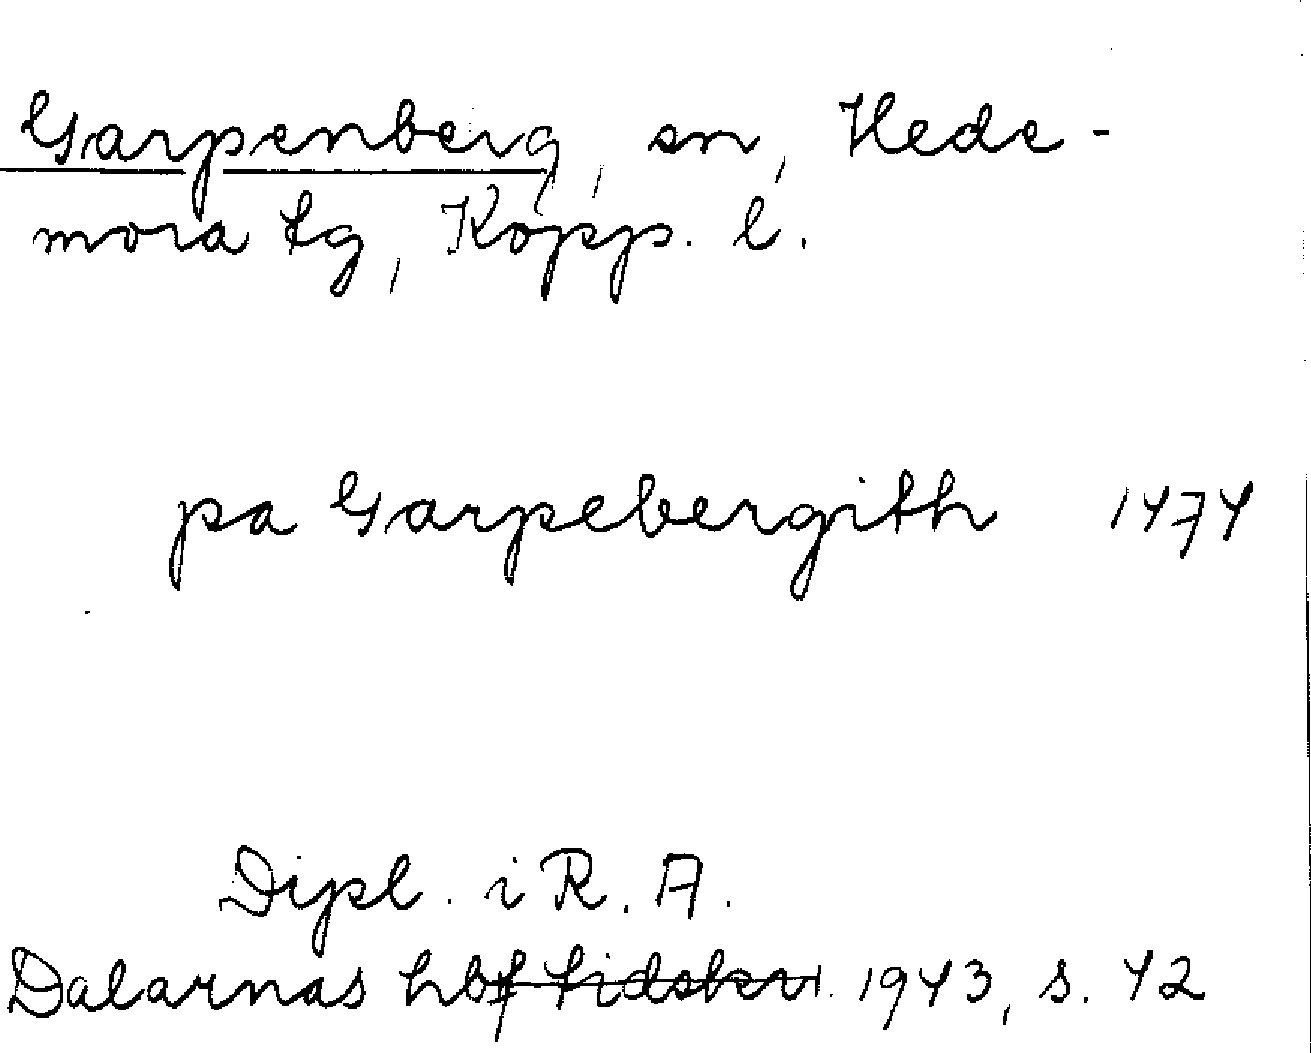 Garpenberg, sn, Hede-
mora tg, Kopp. l.
pa Garpebergith 1474
Dipl. i R. A.
Dalarnas hbf tidskr. 1943, s. 42